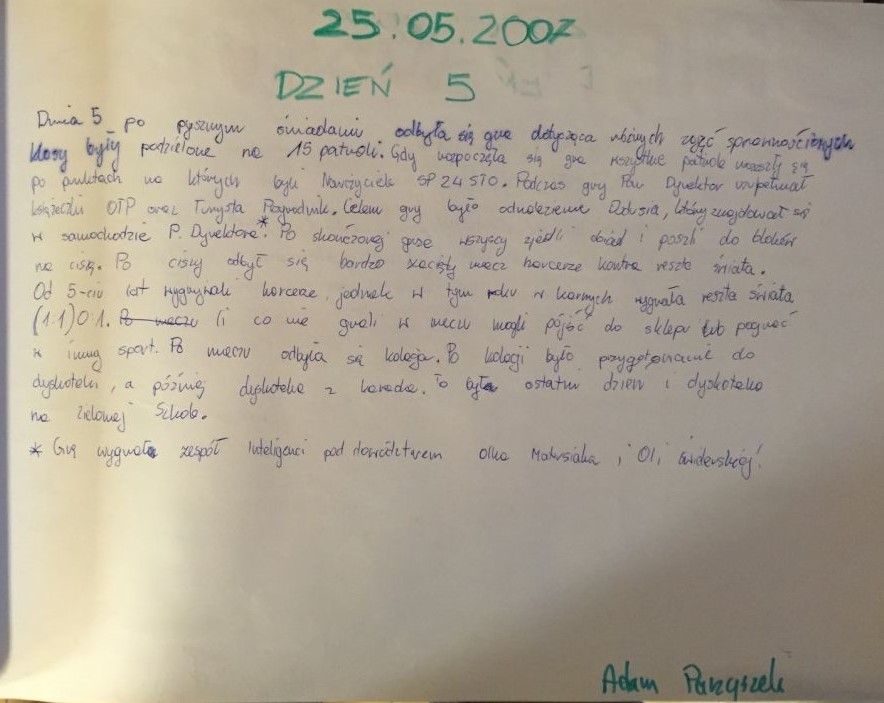 25.05.2007
DZIEŃ 5
Dnia 5 po pysznym śniadaniu odbyła się gra dotycząca różnych zajęć sprawnościowych
klasy były podzielone na 15 patroli. Gdy rozpoczęła się gra wszystkie patrole rozeszły się
po punktach na których byli Nauczyciele SP 24 STO. Podczas gry Pan Dyrektor wypełniał
książeczki OTP oraz Turysta Przyrodnik. Celem gry było odnalezienie Dziusia, który znajdował się
w samochodzie P. Dyrektora*. Po skończonej grze wszyscy zjedli obiad i poszli do bloków
na ciszę. Po ciszy odbył się bardzo zacięty mecz harcerze kontra reszta świata.
Od 5-ciu lat wygrywali harcerze, jednak w tym roku w karnych wygrała reszta świata
(1:1) 0:1. Po meczu Ci co nie grali w meczu mogli pójść do sklepu lub pograć
w inny sport. Po meczu odbyła się kolacja. Po kolacji było przygotowanie do
dyskoteki, a później dyskoteka z karaoke. To był ostatni dzień i dyskoteka
na Zielonej Szkole.
* Grę wygrała zespół Inteligenci pod dowództwem Olka Matusiaka i Oli Świderskiej!
Adam Parzyszek